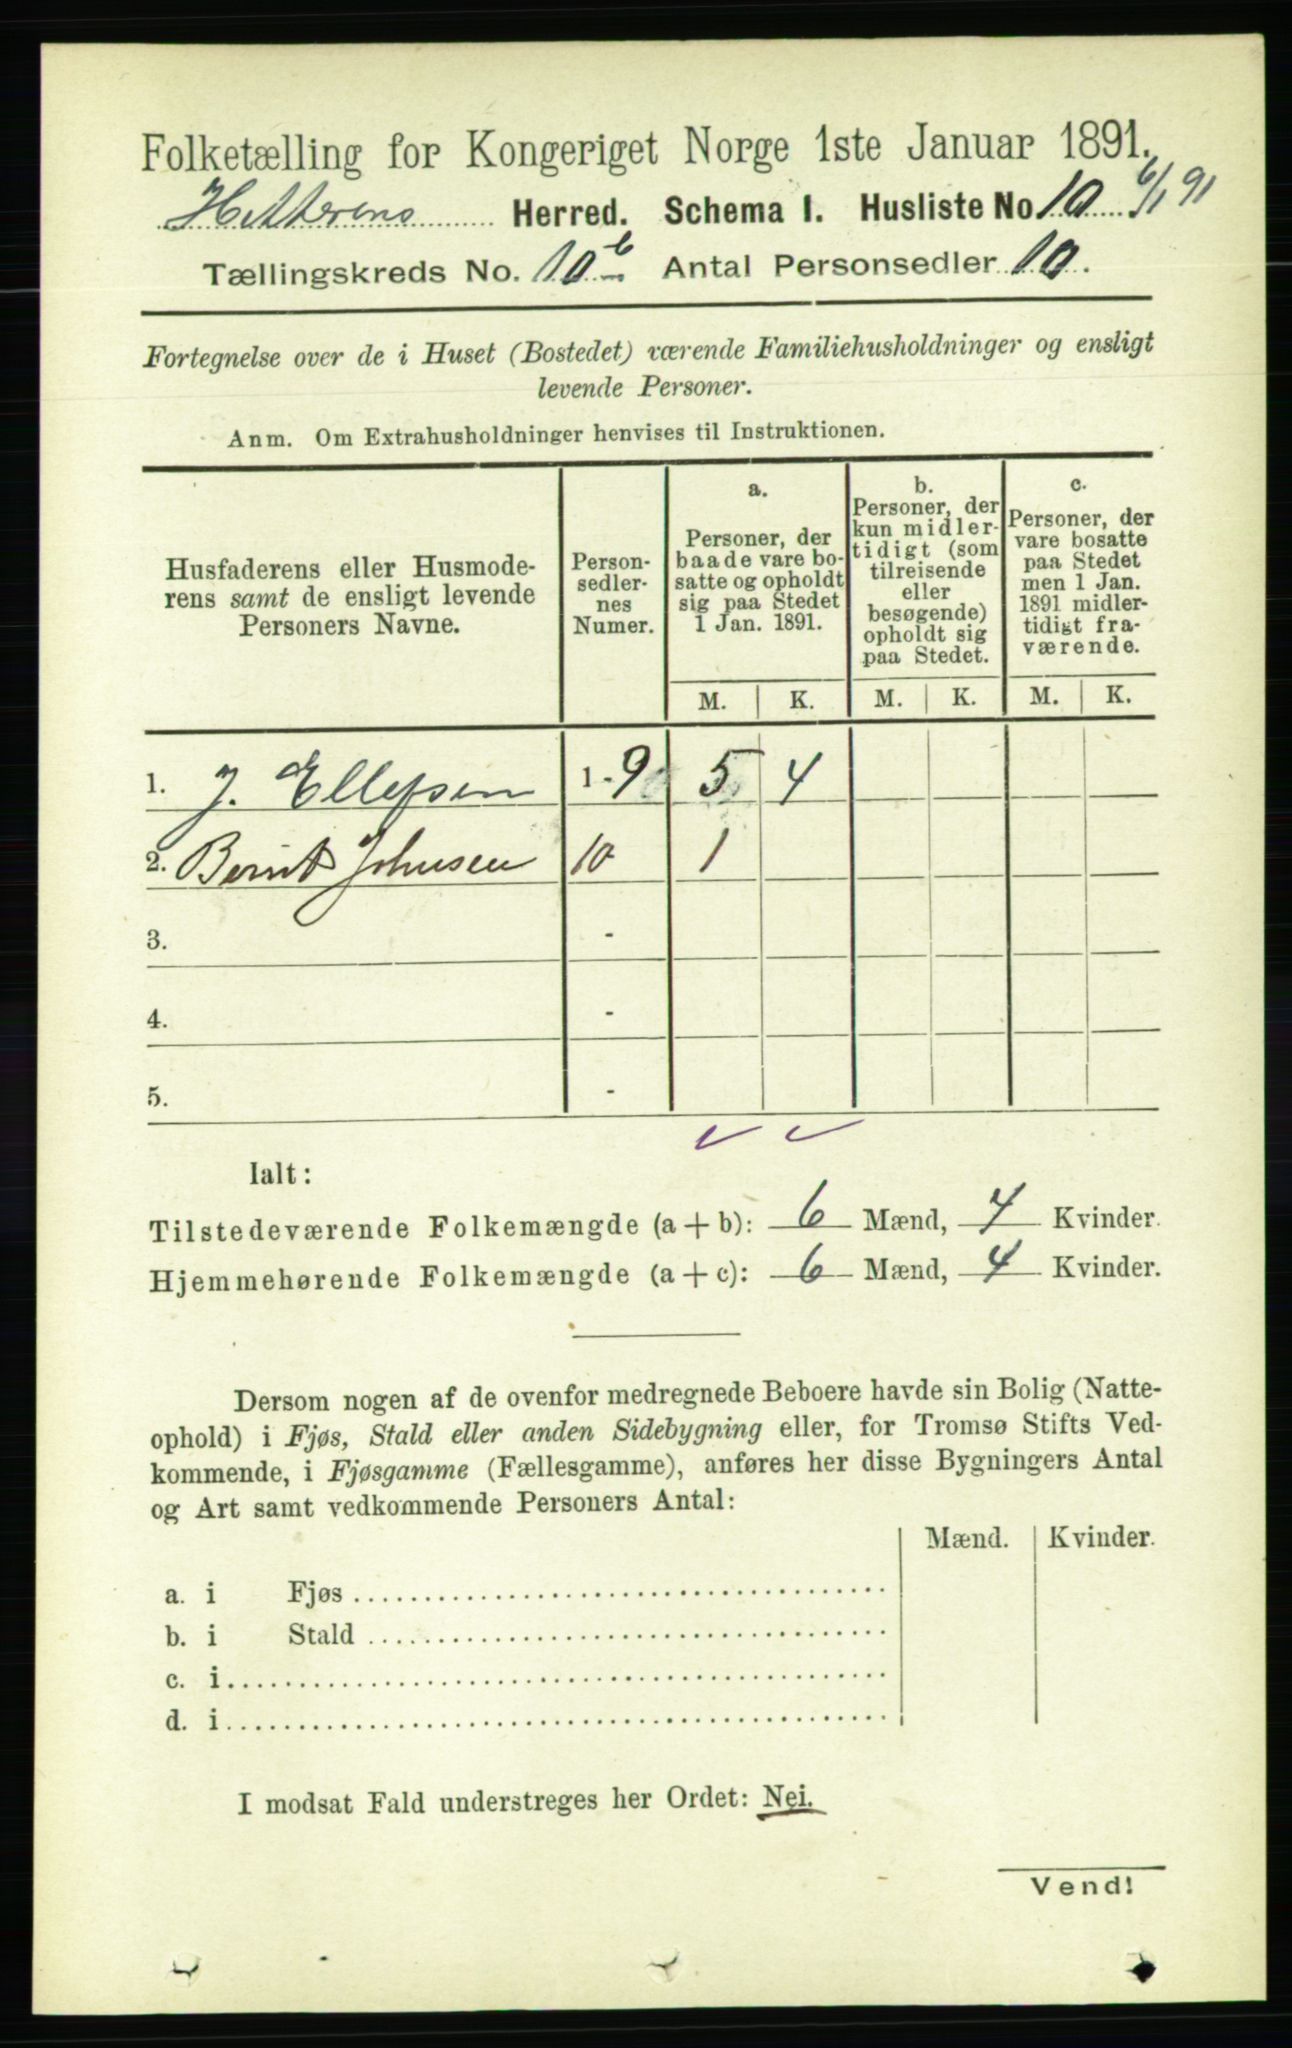 Folketælling for Kongeriget Norge 1ste Januar 1891.
Hitterens Herred. Schema I. Husliste No 10 6/1 91
Tællingskreds No. 10 b Antal Personsedler 10.
Fortegnelse over de i Huset (Bostedet) værende Familiehusholdninger og ensligt
levende Personer.
Anm. Om Extrahusholdninger henvises til Instruktionen.
Husfaderens eller Husmode-
rens samt de ensligt levende
Personers Navne.
Person-
sedler-
nes
Numer.
a.
Personer, der
baade vare bo-
satte og opholdt
sig paa Stedet
1 Jan. 1891.
b.
Personer, der
kun midler-
tidigt (som
tilreisende
eller
besøgende)
opholdt sig
paa Stedet.
c.
Personer, der
vare bosatte
paa Stedet
men 1 Jan.
1891 midler-
tidigt fra-
værende.
M. K. M. K. M. K.
1. J. Ellefsen 1-9 5 4
2. Bernt Johnsen 10 1
3. -
4. -
5. -
Ialt:
Tilstedeværende Folkemængde (a + b): 6 Mænd, 4 Kvinder.
Hjemmehørende Folkemængde (a + c): 6 Mænd, 4 Kvinder.
Dersom nogen af de ovenfor medregnede Beboere havde sin Bolig (Natte-
ophold) i Fjøs, Stald eller anden Sidebygning eller, for Tromsø Stifts Ved-
kommende, i Fjøsgamme (Fællesgamme), anføres her disse Bygningers Antal
og Art samt vedkommende Personers Antal:
Mænd. Kvinder.
a. i Fjøs
b. i Stald
c. i
d. i
I modsat Fald understreges her Ordet: Nei.
Vend!